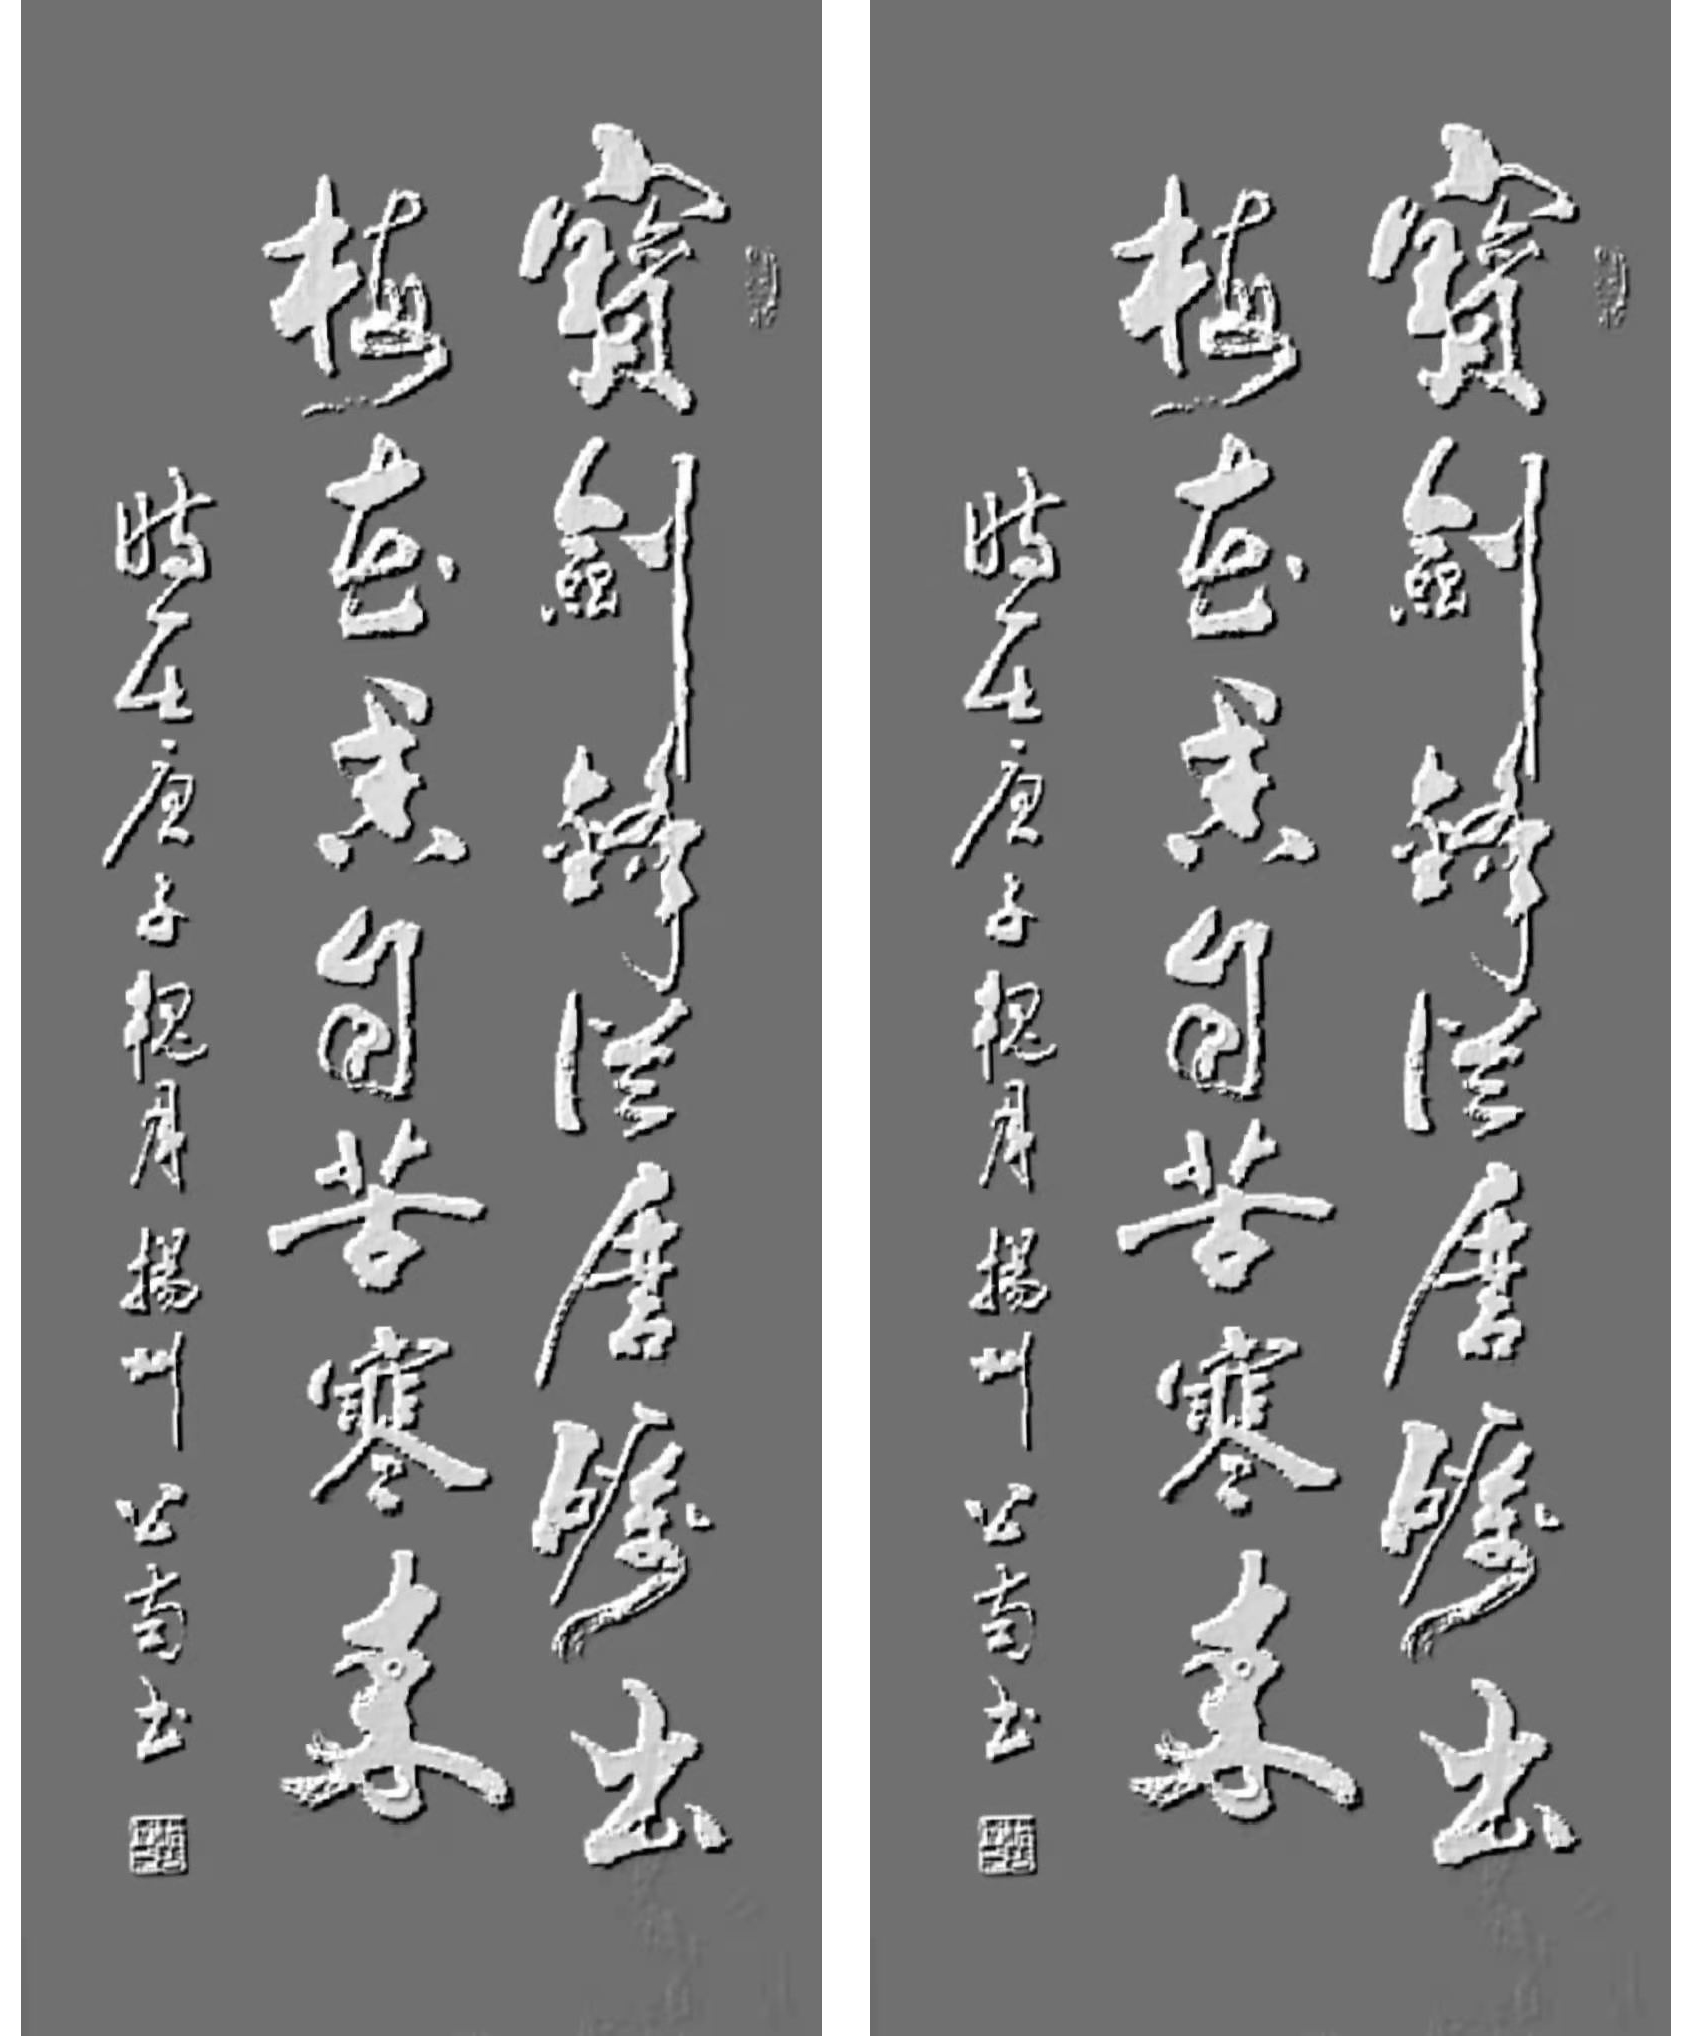 寶劍鋒從磨礪出
梅花香自苦寒來
時在庚子槐月揚州公南書
寶劍鋒從磨礪出
梅花香自苦寒來
時在庚子槐月揚州公南書